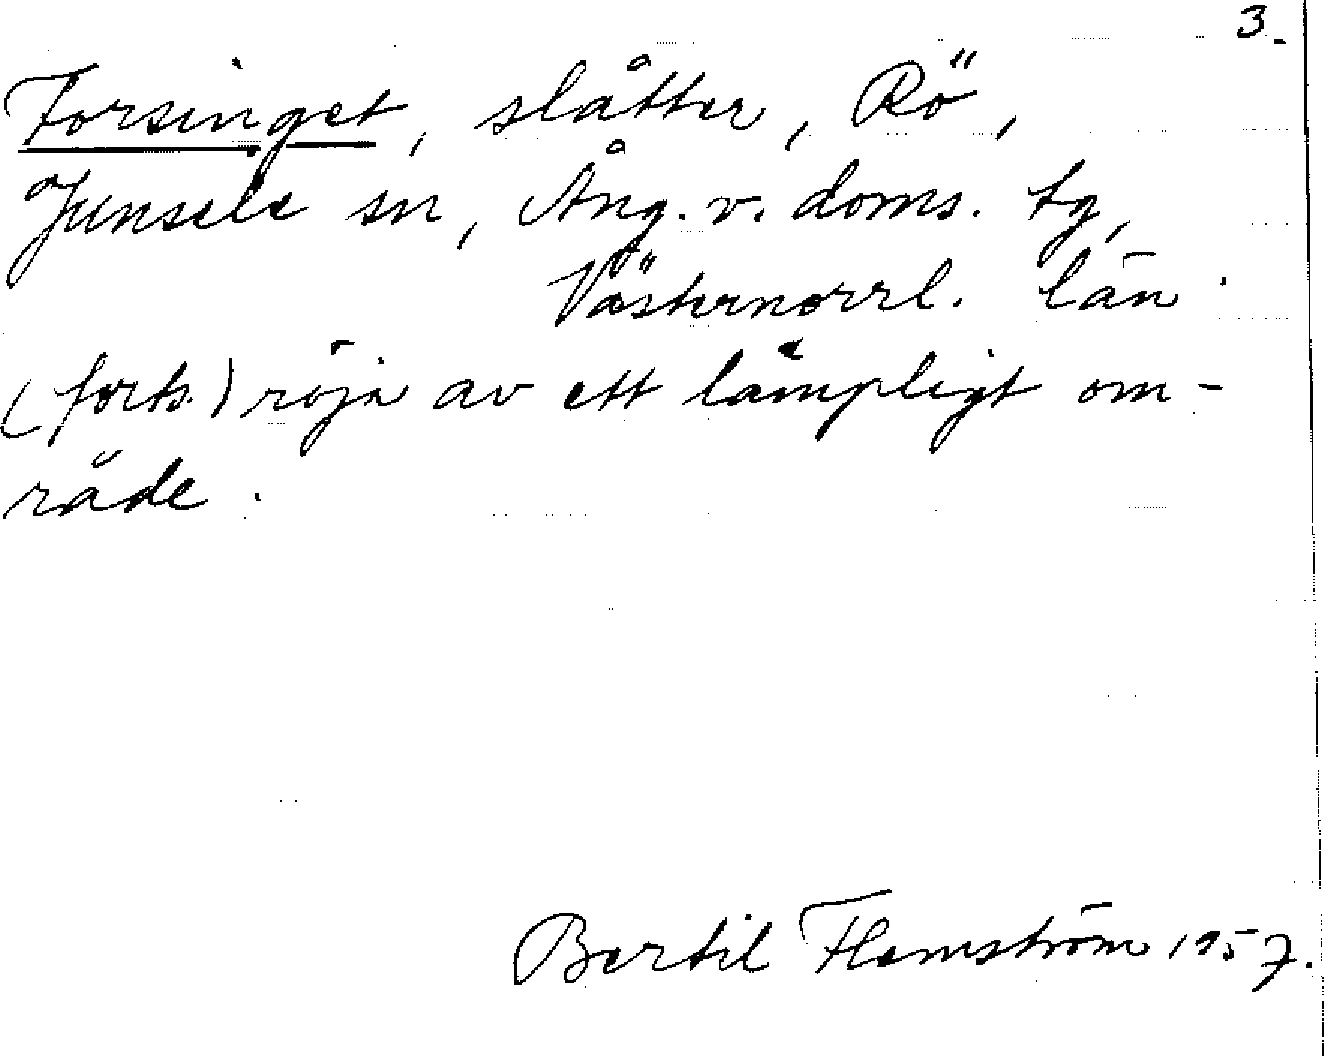 3.
Forsinget, slåtter, Rö,
Junsele sn, Ång. v. doms. tg,
Västernorrl. län.
(forts.) röja av ett lämpligt om-
råde.
Bertil Flemström 1957.